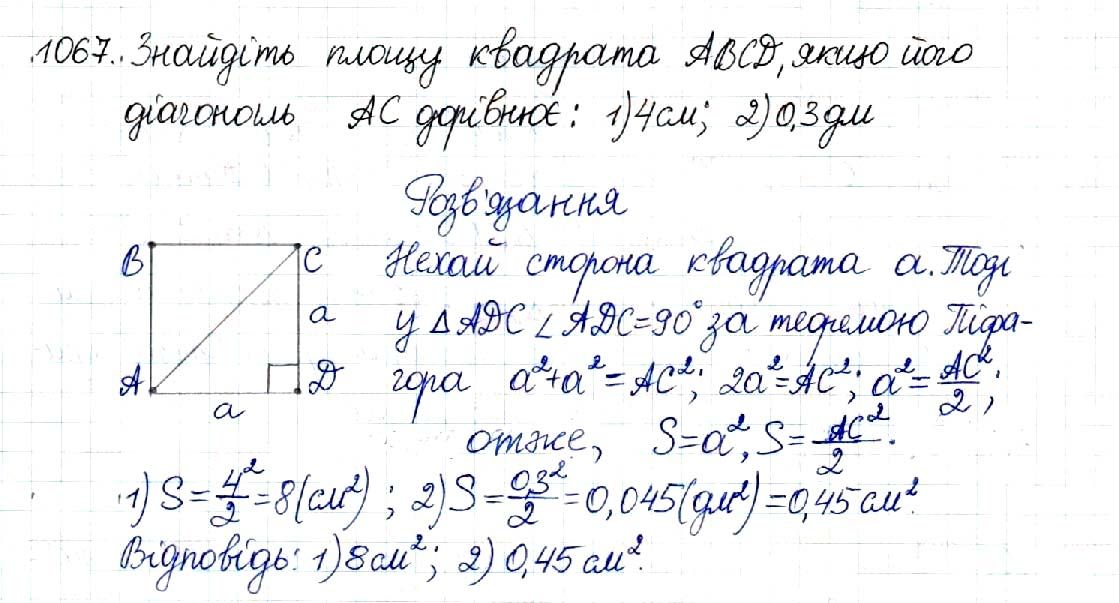 1067. Знайдіть площу квадрата ABCD, якщо його
діагональ AC дорівнює: 1) 4 см; 2) 0,3 дм
Розв'язання
B C Нехай сторона квадрата a. Тоді
a у ΔADC ∠ADC=90° за теоремою Піфа-
A D гора a²+a²=AC²; 2a²=AC²; a²=AC²/2;
a
отже, S=a², S=AC²/2.
1) S=4²/2=8(см²); 2) S=0,3²/2=0,045(дм²)=0,45 см².
Відповідь: 1) 8 см²; 2) 0,45 см².